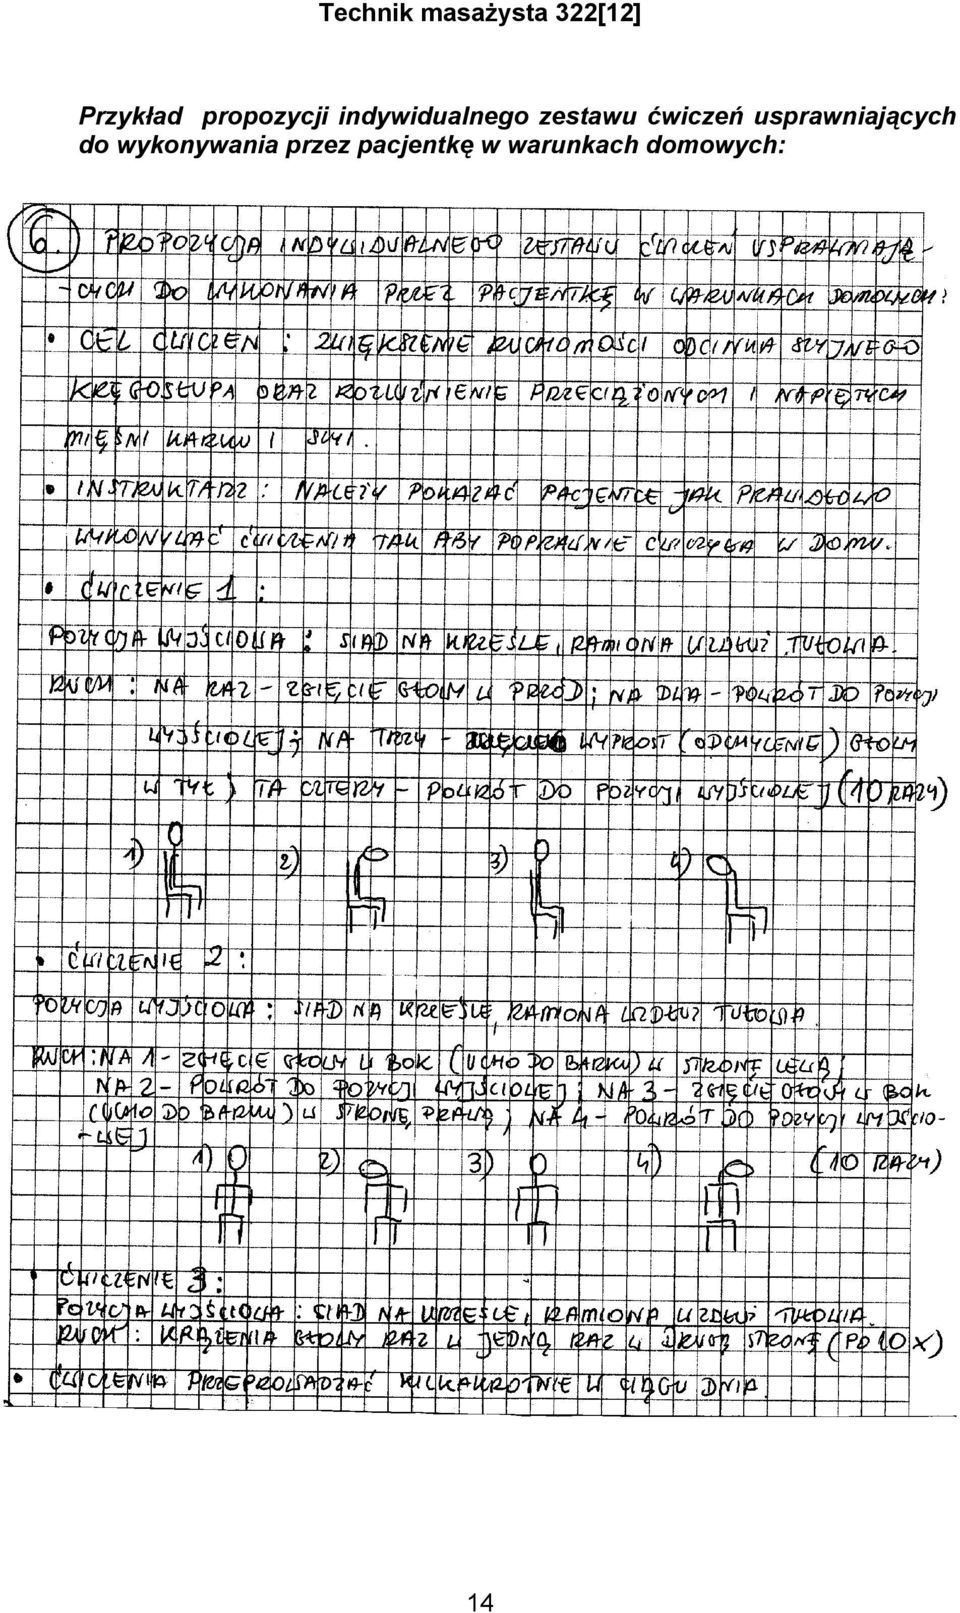 Technik masażysta 322[12]
Przykład propozycji indywidualnego zestawu ćwiczeń usprawniających
do wykonywania przez pacjentkę w warunkach domowych:
6. PROPOZYCJA INDYWIDUALNEGO ZESTAWU ĆWICZEŃ USPRAWNIAJĄ-
-CYCH DO WYKONANIA PRZEZ PACJENTKĘ W WARUNKACH DOMOWYCH:
• CEL ĆWICZEŃ : ZWIĘKSZENIE RUCHOMOŚCI ODCINKA SZYJNEGO
KRĘGOSŁUPA ORAZ ROZLUŹNIENIE PRZECIĄŻONYCH I NAPIĘTYCH
MIĘŚNI KARKU I SZYI.
• INSTRUKTARZ : NALEŻY POKAZAĆ PACJENTCE JAK PRAWIDŁOWO
WYKONYWAĆ ĆWICZENIA TAK ABY POPRAWNIE ĆWICZYŁA W DOMU.
• ĆWICZENIE 1 :
POZYCJA WYJŚCIOWA : SIAD NA KRZEŚLE, RAMIONA WZDŁUŻ TUŁOWIA.
RUCH : NA RAZ - ZGIĘCIE GŁOWY W PRZÓD; NA DWA - POWRÓT DO POZYCJI
WYJŚCIOWEJ; NA TRZY - WYPROST (ODCHYLENIE) GŁOWY
W TYŁ; TA CZTERY - POWRÓT DO POZYCJI WYJŚCIOWEJ (10 RAZY)
1) 2) 3) 4)
• ĆWICZENIE 2 :
POZYCJA WYJŚCIOWA : SIAD NA KRZEŚLE, RAMIONA WZDŁUŻ TUŁOWIA.
RUCH : NA 1 - ZGIĘCIE GŁOWY W BOK (UCHO DO BARKU) W STRONĘ LEWĄ;
NA 2 - POWRÓT DO POZYCJI WYJŚCIOWEJ; NA 3 - ZGIĘCIE GŁOWY W BOK
(UCHO DO BARKU) W STRONĘ PRAWĄ; NA 4 - POWRÓT DO POZYCJI WYJŚCIO-
-WEJ
1) 2) 3) 4) (10 RAZY)
• ĆWICZENIE 3 :
POZYCJA WYJŚCIOWA : SIAD NA KRZEŚLE, RAMIONA WZDŁUŻ TUŁOWIA.
RUCH : KRĄŻENIA GŁOWY RAZ W JEDNĄ RAZ W DRUGĄ STRONĘ (PO 10 X)
• ĆWICZENIA PRZEPROWADZAĆ KILKAKROTNIE W CIĄGU DNIA.
14